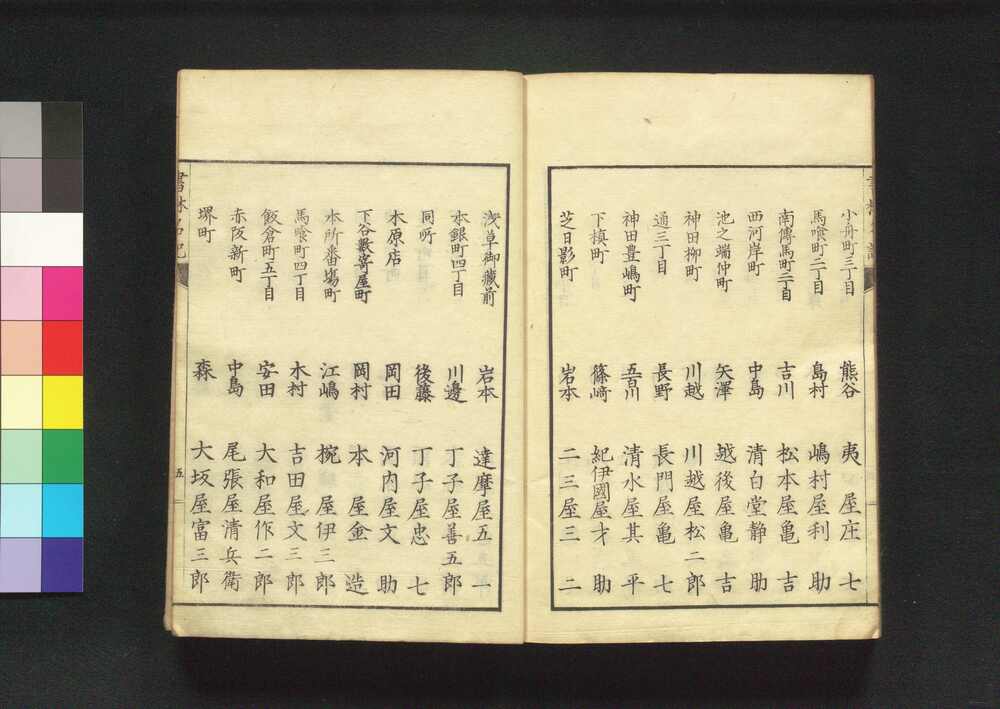 小舟町三丁目 熊谷 夷屋庄七
馬喰町二丁目 島村 嶋村屋利助
南傳馬町二丁目 吉川 松本屋亀吉
西河岸町 中島 清白堂静助
池之端仲町 矢澤 越後屋亀吉
神田柳町 川越 川越屋松二郎
通三丁目 長野 長門屋亀七
神田豊嶋町 五百川 清水屋其平
下槙町 篠﨑 紀伊國屋才助
芝日影町 岩本 二三屋三二
浅草御藏前 岩本 達摩屋五一
本銀町四丁目 川邊 丁子屋善五郎
同所 後藤 丁子屋忠七
木原店 岡田 河内屋文助
下谷數寄屋町 岡村 本屋金造
本所番塲町 江嶋 椀屋伊三郎
馬喰町四丁目 木村 吉田屋文三郎
飯倉町五丁目 安田 大和屋作二郎
赤阪新町 中島 尾張屋清兵衛
堺町 森 大坂屋富三郎
五